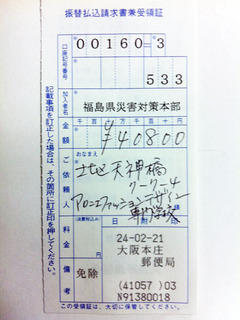 振替払込請求書兼受領証
口座記号番号
00160-3
533
加入者名
福島県災害対策本部
金額
千百十万千百十円
¥40800
おなまえ
ご依頼人
北区天神橋
専門学校
(消費税込み)
料金
日附印
備考
免除
24-02-21
大阪本庄
郵便局
(41057)03
N91380018
記載事項を訂正した場合は、その箇所に訂正印を押してください。
この受領証は、大切に保管してください。